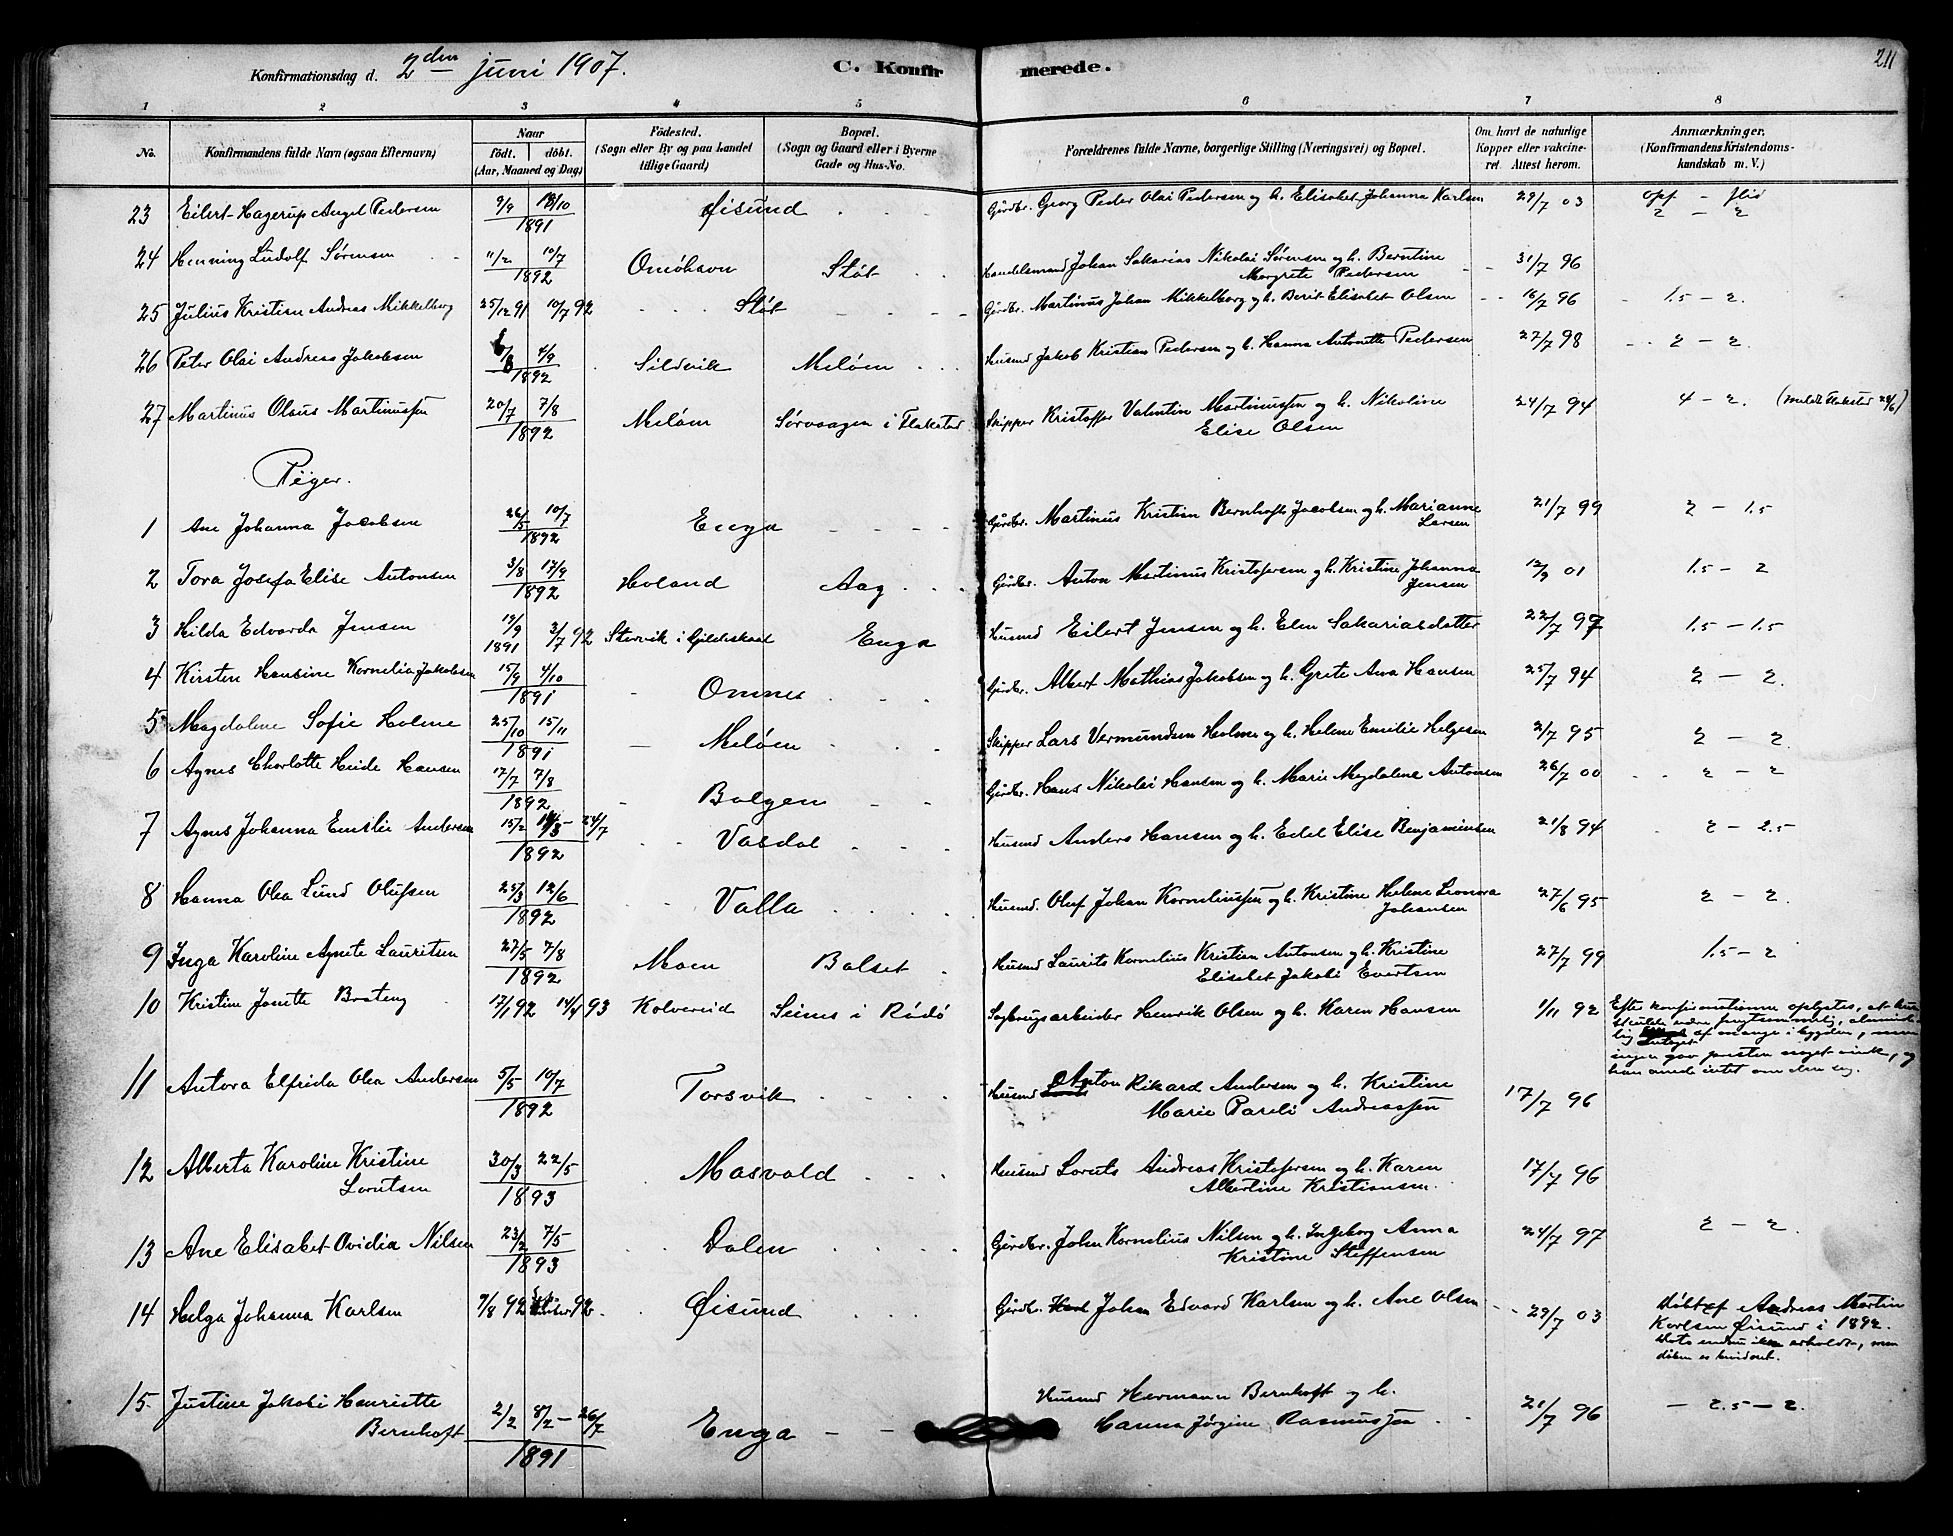 211
Konfirmationsdag d. 2den juni 1907. C. Konfirmerede.
1 2 3 4 5 6 7 8
No. Konfirmandens fulde Navn (ogsaa Efternavn) Naar født. døbt. (Aar, Maaned og Dag) Fødested. (Sogn eller By og paa Landet tillige Gaard) Bopæl. (Sogn og Gaard eller i Byerne Gade og Hus-No. Forældrenes fulde Navne, borgerlige Stilling (Næringsvei) og Bopæl. Om havt de naturlige Kopper eller vakcineret. Attest herom. Anmærkninger. (Konfirmandens Kristendomskundskab m. V.)
23 Eilert Hagerup Angel Pedersen 9/9 18/10 1891 Øisund Gårdbr. Georg Peder Olai Pedersen og h. Elisabet Johanna Karlsen 29/7 03 opf - flid 2 - 2
24 Henning Ludolf Sørensen 11/2 10/7 1892 Omøhavn Støt Handelsmand Johan Sakarias Nikolai Sørensen og h. Berntine Margrete Pedersen 31/7 96
25 Julius Kristian Andreas Mikkelborg 25/12 91 10/7 92 Støt Gårdbr. Martinus Johan Mikkelborg og h. Berit Elisabet Olsen 16/7 96 1.5 - 2.
26 Peter Olai Andreas Jakobsen 6/8 4/9 1892 Sildvik Meløen Husmd Jakob Kristian Pedersen og h. Hanna Antonette Pedersen 27/7 98 2 - 2.
27 Martinus Olaus Martinussen 20/7 7/8 1892 Meløen Sørvaagen i Flakstad Skipper Kristoffer Valentin Martinussen og h. Nikoline Elise Olsen 24/7 94 4 - 2. (meldt Flakstad 24/6)
Piger.
1 Ane Johanna Jacobsen 26/5 10/7 1892 Enga Gårdbr. Martinus Kristian Bernhoft Jacobsen og h. Marianne Larsen 21/7 99 2 - 1.5
2 Tora Josefa Elise Antonsen 3/8 17/9 1892 Holand Aag Gårdbr. Anton Martinus Kristofersen og h. Kristine Johanna Jensen 12/9 01 1.5 - 2
3 Hilda Edvarda Jensen 13/9 1891 3/7 92 Storvik i Gildeskaal Enga Husmd Eilert Jensen og h. Elen Sakariasdatter 22/7 97 1.5 - 1.5
4 Kirsten Hansine Kornelia Jakobsen 15/9 4/10 1891 Omnes Gårdbr. Albert Mathias Jakobsen og h. Grete Ana Hansen 25/7 94 2 - 2.
5 Magdalene Sofie Holme 25/10 15/11 1891 Meløen Skipper Lars Vermundsen Holme og h. Helene Emilie Helgesen 2/7 95 2 - 2.
6 Agnes Charlotte Heide Hansen 17/7 7/8 1892 Bolgen Gårdbr. Hans Nikolai Hansen og h. Marie Magdalene Antonsen 26/7 00 2 - 2
7 Agnes Johanna Emilie Andersen 15/2 - 24/7 1892 Vasdal Husmd Anders Hansen og h. Edel Elise Benjaminsen 21/8 94 2 - 2.5
8 Hanna Olea Lund Olufsen 25/3 12/6 1892 Valla Husmd. Oluf Johan Korneliussen og h. Kristine Helene Leonora Johansen 27/6 95 2 - 2.
9 Inga Karoline Agnete Lauritsen 27/5 7/8 1892 Moen Bolset Husmd Laurits Kornelius Kristian Antonsen og h. Kristine Elisabet Jakobi Evertsen 27/7 99 1.5 - 2
10 Kristine Jonette Brateng 17/1 92 14/4 93 Kolvereid Seines i Rødø Sagbrugsarbeider Henrik Olsen og h. Karen Hansen 1/11 92 Efter konfirmationen oplystes, at hun skulde være frugtsommelig, almindelig antaget af mange i bygden, men ingen gav presten noget vink, og han anede intet om den sag.
11 Antora Elfrida Olea Andersen 5/5 10/7 1892 Torsvik Husmd Anton Rikard Andersen og h. Kristine Marie Pareli Andreassen 17/7 96
12 Alberta Karoline Kristine Lorntsen 30/3 22/5 1893 Masvold Husmd Lornts Andreas Kristofersen og h. Karen Albertine Kristiansen. 17/7 96
13 Ane Elisabet Ovidia Nilsen 23/2 7/5 1893 Dalen Gårdbr. John Kornelius Nilsen og h. Ingeborg Anna Kristine Steffensen 24/7 97 2 - 2.
14 Helga Johanna Karlsen 7/8 92 92. Øisund Gårdbr. Johan Edvard Karlsen og h. Ane Olsen 29/7 03 Døbt af Andreas Martin Karlsen Øisund i 1892. Dato endnu ikke erholdt, men dåben er bevidnet.
15. Justine Jakobi Henriette Bernhoft 2/2 8/2 - 26/7 1891 Enga Husmd Hermann Bernhoft og h. Hanna Jørgine Rasmussen 21/7 96 - 2.5 - 2.